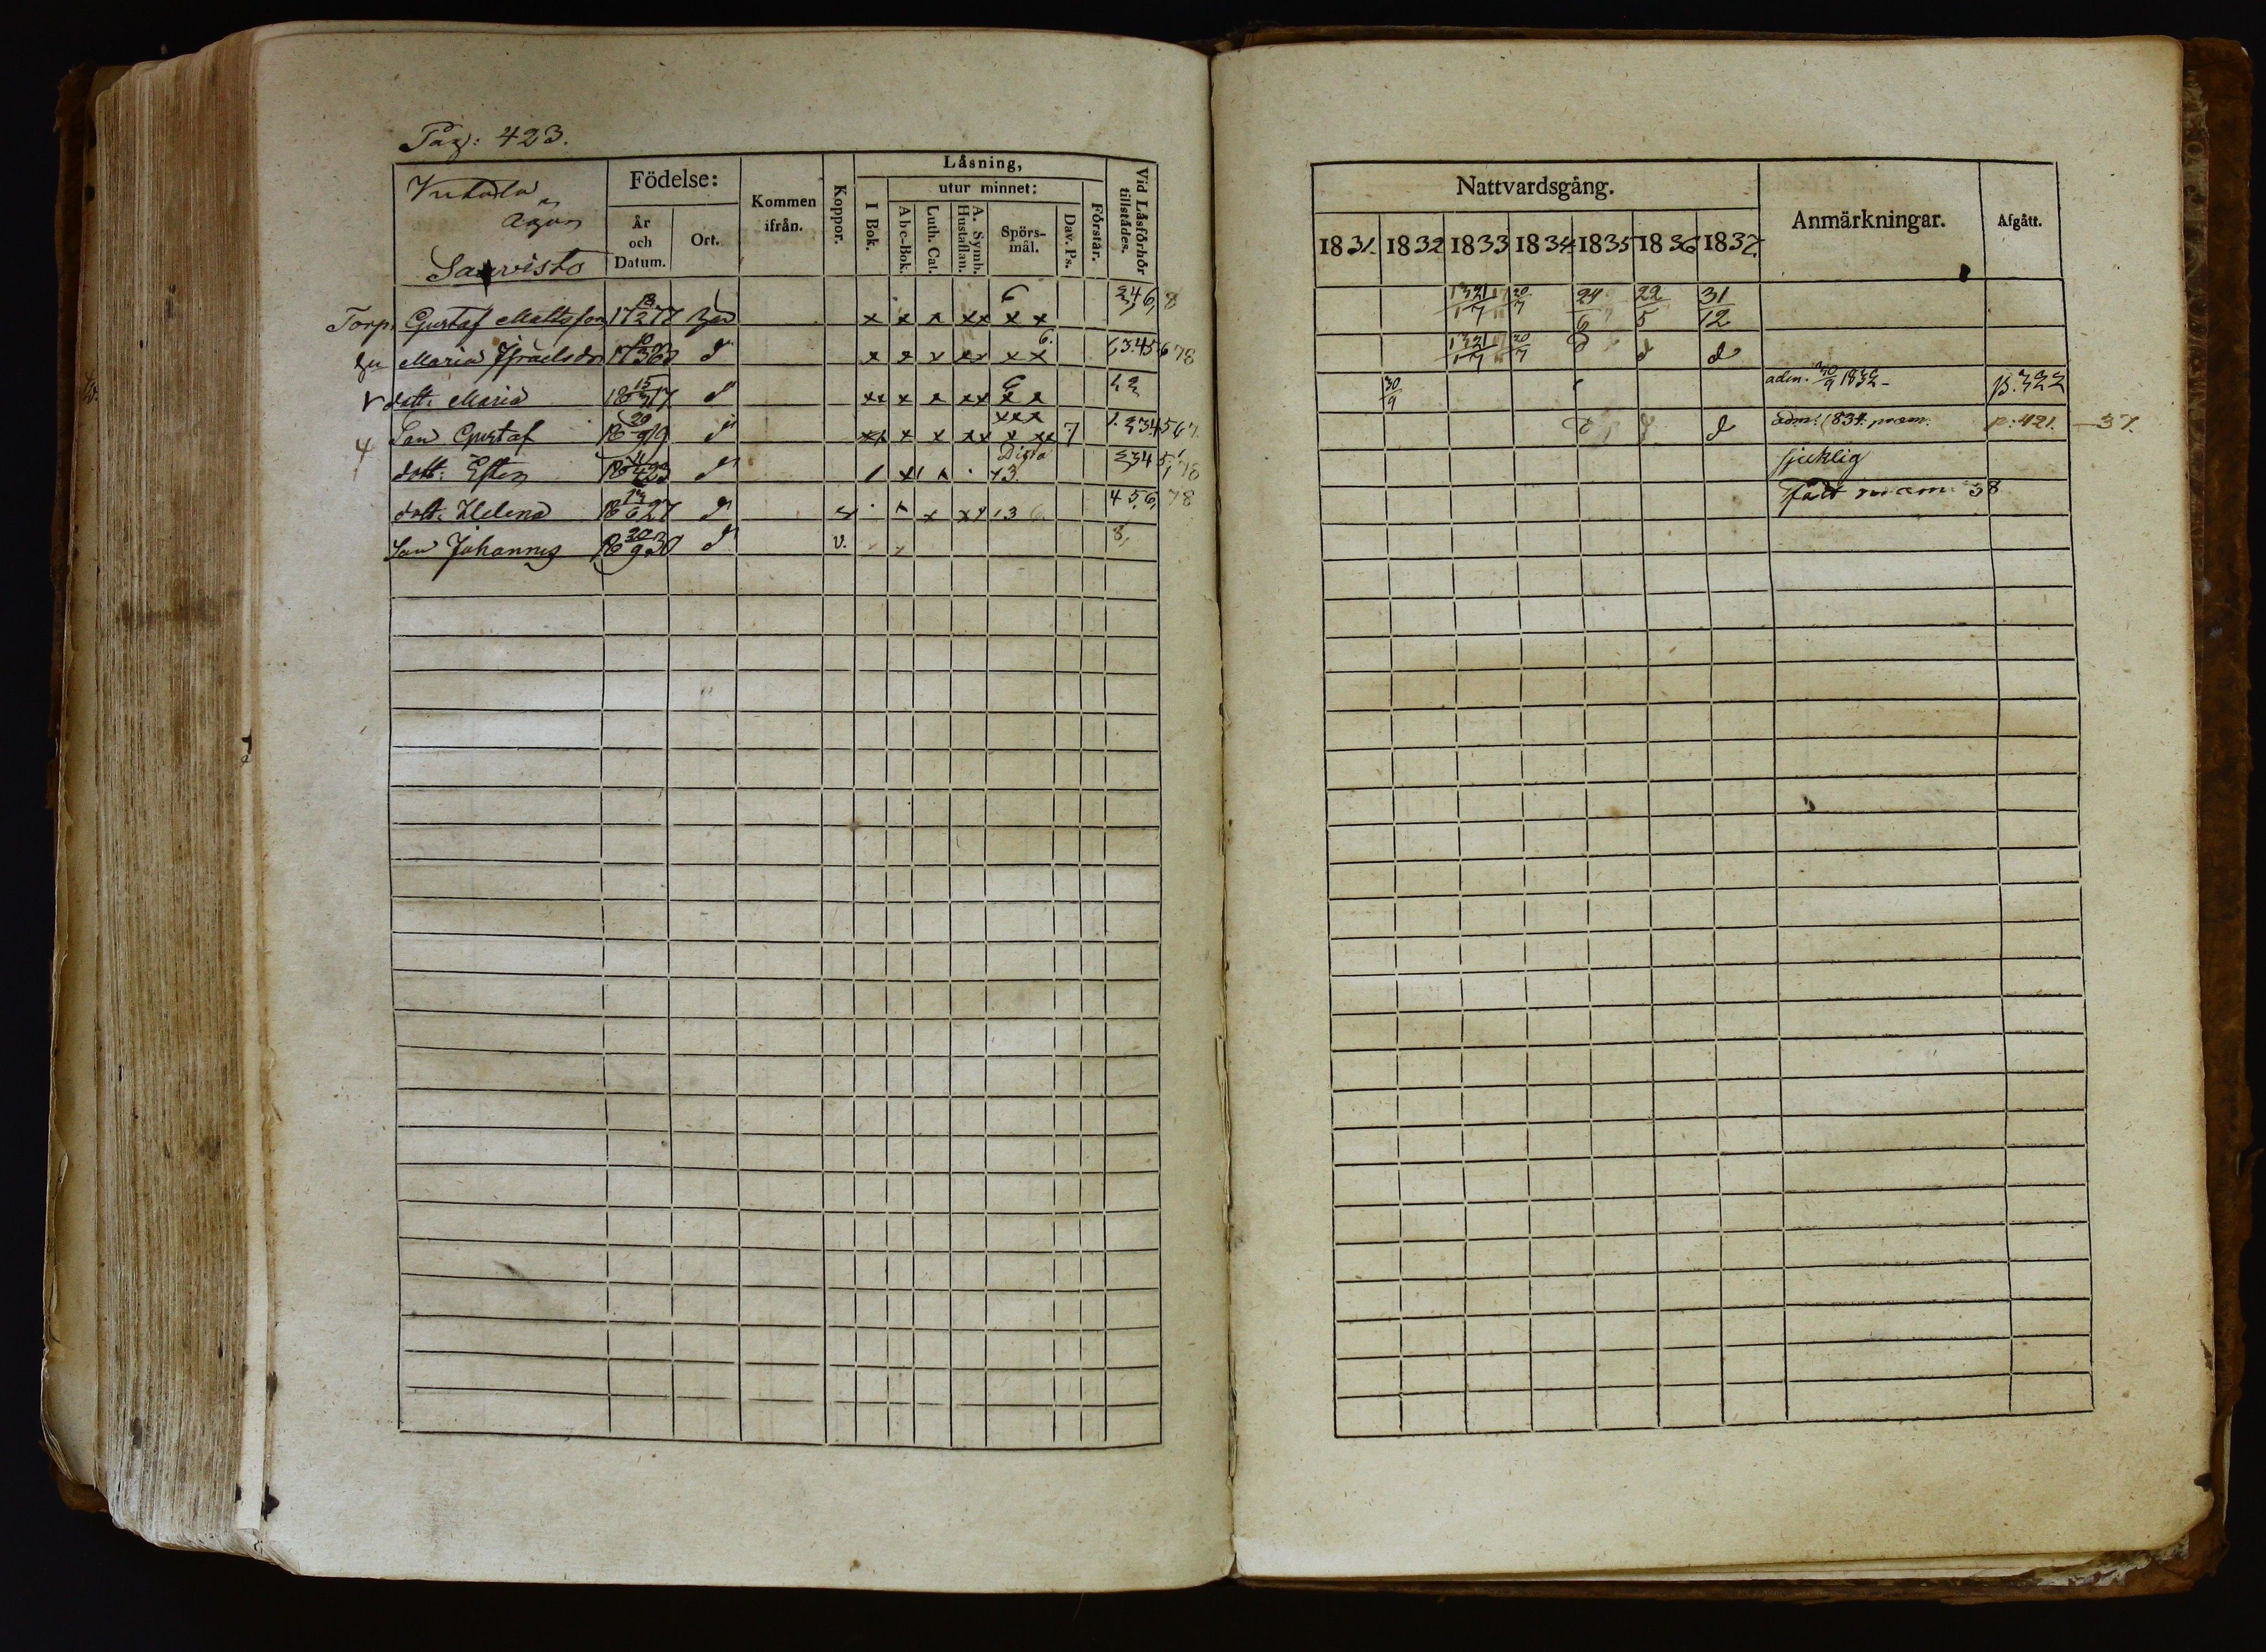 Pag: 423.
ägor
Födelse:
År och Datum.
Ort.
Kommen ifrån.
Koppor.
Låsning,
utur minnet:
I Bok.
Abc-Bok.
Luth. Cat.
A. Symb. Hustaflan.
Spörs-mål.
Dav. Ps.
Förstår.
Vid Låsförhör tillstådes.
Torp. Gustaf Mattsson 13/2 177 x x x xx x x 6 2,4 6, 8
hu Maria Israelsdr 10 d x x x xx xx 6. 678
v dott. Maria 15/3 1817 d xx x x xx x x 6
4 Son Gustaf 20/9 1819 d xx x x xx x xx 7 1. 234567.
dott. Ester 1823 d 13. 2345, 78
dott. Helena 13/6 1827 d v 13 6. 4 5,6, 78
Son Johannes 30/9 1830 d v. 8,
Nattvardsgång.
1831. 1832 1833 1834. 1835 1836 1837.
Anmärkningar.
Afgått.
13 21/7 20/7 24/6 22/5 31/12
13 21/7 20/7 d d d
30/9 adm. 30/9 1832- p. 322
d d d adm. 1834. p. 421. -37.
sjuklig
38